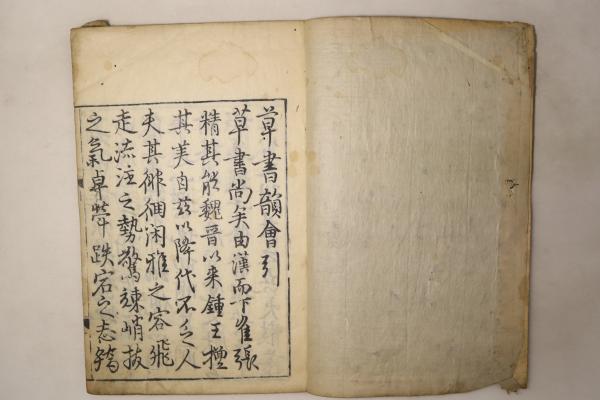 草書韻會引
草書尚矣由漢而下崔張
精其能魏晉以来鍾王擅
其美自茲以降代不乏人
夫其俳佪闲雅之容飛
走流注之勢驚竦峭拔
之氣卓犖跌宕之志矯